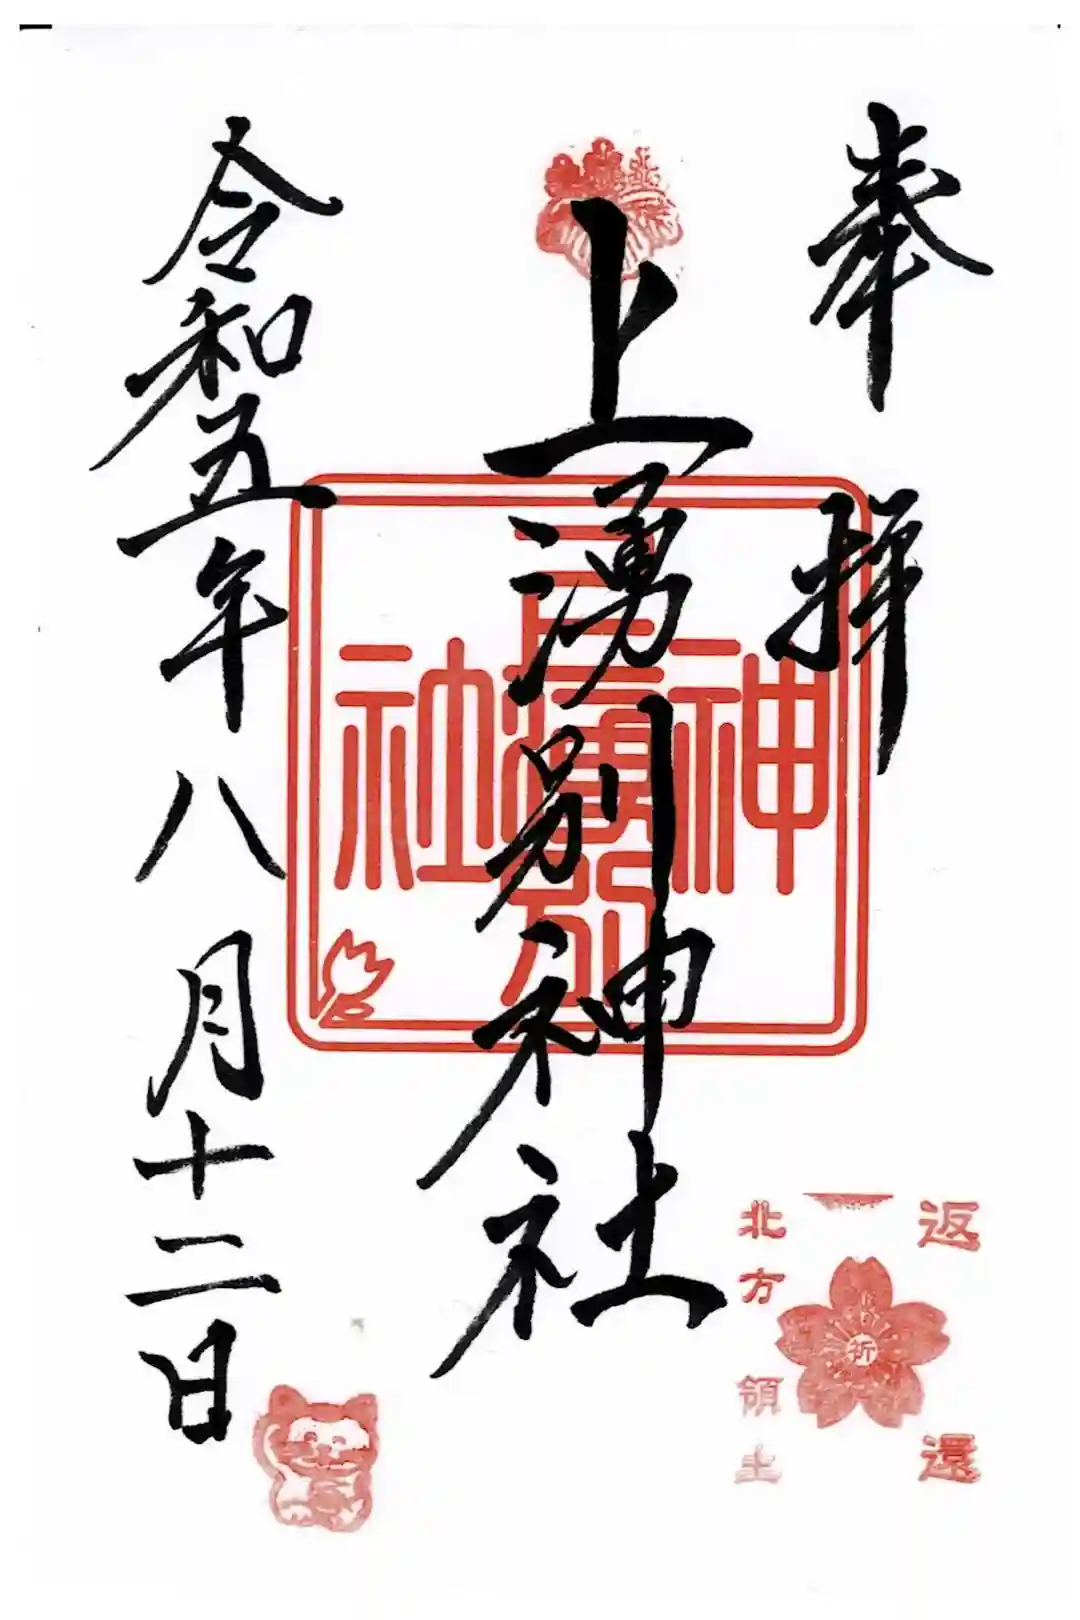 奉拝
上湧別神社
令和五年八月十二日
神
上湧別
社
返還
祈
北方領土